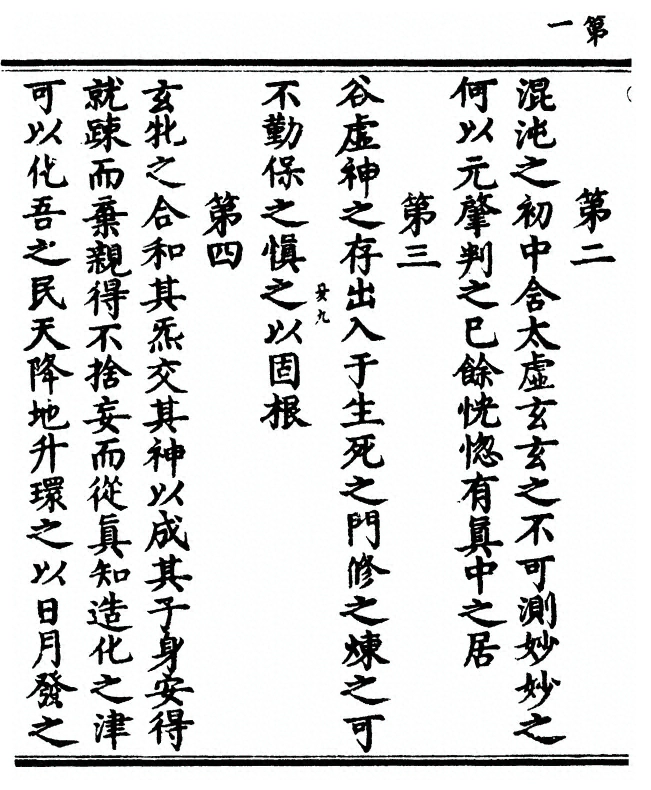 第一
第二
混沌之初中含太虛玄玄之不可測妙妙之
何以元肇判之巳餘恍惚有眞中之居
第三
谷虛神之存出入于生死之門修之煉之可
不勤保之愼之以固根
第四
玄牝之合和其炁交其神以成其子身安得
就踈而棄親得不捨妄而從眞知造化之津
可以化吾之民天降地升環之以日月發之